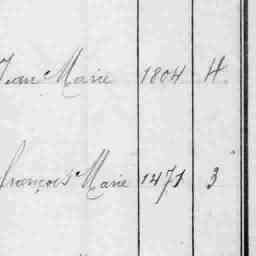 Jean Marie 1804 4.
François Marie 1471 3